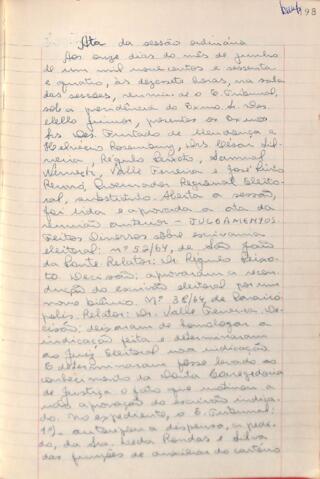 98
Ata da sessão ordinária
Aos onze dias do mês de junho
de um mil novecentos e sessenta
e quatro, às dezoito horas, na sala
das sessões, reuniu-se o E. Tribunal,
sob a presidência do Exmo. Sr. Des.
Mello Junior, presentes os Exmos
Srs. Des. Furtado de Mendonça e
Helvécio Rosenburg, Drs. César Sil-
veira, Régulo Peixoto, Samuel
Werneck, Valle Ferreira e José Pinto
Renó, Procurador Regional Eleito-
ral, substituto. Aberta a sessão,
foi lida e aprovada a ata da
reunião anterior - JULGAMENTOS.
Feitos Diversos sôbre escrivania
eleitoral: nº 52/64, de São João
da Ponte Relator: Dr. Régulo Peixo-
to Decisão: aprovaram a recon-
dução do escrivão eleitoral por um
novo biênio. Nº 38/64, de Paraisó-
polis. Relator: Dr. Valle Ferreira. De-
cisão: deixaram de homologar a
indicação feita e determinaram
ao Juiz Eleitoral nova indicação.
E determinaram fosse levado ao
conhecimento da Douta Corregedoria
de Justiça o fato que motivou a
não aprovação do escrivão indica-
do. No expediente, o E. Tribunal:
1º)- autorizou a dispensa, a pedi-
do, da Sra. Leda Rondas e Silva
das funções de auxiliar do cartório